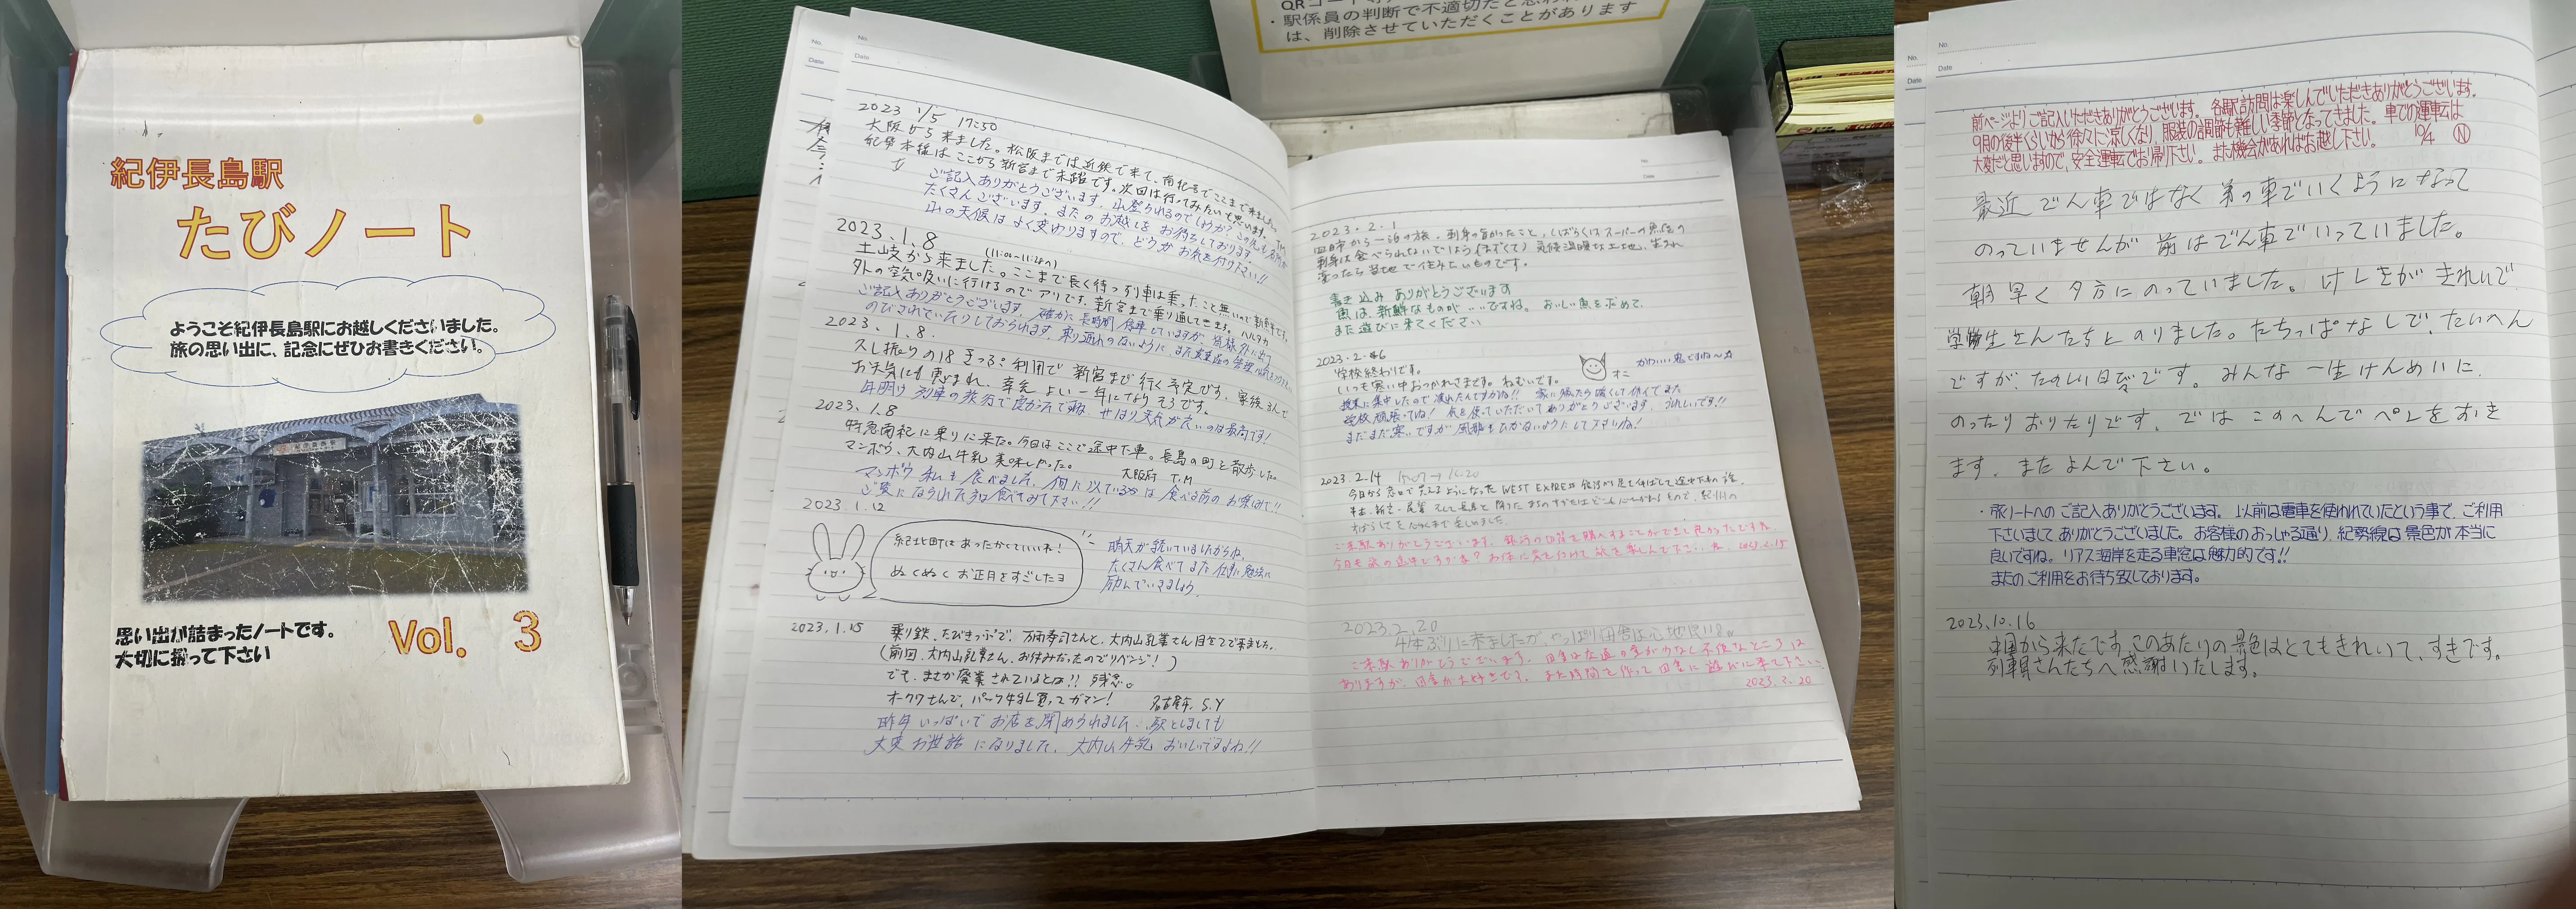 紀伊長島駅
たびノート
ようこそ紀伊長島駅にお越しくださいました。
旅の思い出に、記念にぜひお書きください。
思い出が詰まったノートです。
大切に扱って下さい
Vol. 3
QRコード
・駅係員の判断で不適切だと思わ
は、削除させていただくことがあります
No.
Date
No.
Date
2023 1/5 17:50
大阪から来ました。松阪までは近鉄で来て、南紀号でここまで来ました。
紀勢本線はここから新宮まで未踏です。次回は行ってみたいと思います。
ご記入ありがとうございます。山登られるのでしょうか?この先も名所が
たくさんございます。またのお越しをお待ちしております。
山の天候はよく変わりますので、どうかお気を付け下さい!!
2023.1.8
(11:01~11:28つ)
土岐から来ました。ここまで長く待つ列車は乗ったこと無いので新鮮です。
外の空気吸いに行けるのでアリです。新宮まで乗り通してきます。ハルタカ
ご記入ありがとうございます。確かに長時間停車していますが、皆様外に出て
のびされていたりしておられます。乗り遅れのないように
2023.1.8.
久し振りの18きっぷ利用で新宮まで行く予定です。家族3人で
お天気にも恵まれ、幸先よい一年になりそうです。
年明け列車の旅行で良かったですね やはり天気が良いのは最高です!
2023.1.8
特急南紀に乗りに来た。今日はここで途中下車。長島の町を散歩した。
マンボウ、大内山牛乳美味しかった。 大阪府 T.M
マンボウ私も食べました。何に似ているかは食べる前のお楽しみで!!
ご覧になられた方は食べてみて下さい!!
2023.1.12
紀北町はあったかくていいね!
ぬくぬくお正月をすごしたヨ
晴天が続いていましたからね。
たくさん食べてまた仕事に勉強に
励んでいきましょう。
2023.1.15 乗り鉄、たびきっぷで、万両寿司さんと、大内山乳業さん目当てで来ました。
(前回、大内山乳業さん、お休みだったのでリベンジ!)
でも、まさか廃業されているとは!! 残念。
オークワさんで、パック寿し買ってガマン! 名古屋市. S.Y
昨年いっぱいでお店を閉められました。駅としましても
大変お世話になりました。大内山牛乳おいしいですよね!!
No.
Date
2023.2.1
四日市から一泊の旅。刺身の旨かったこと、しばらくはスーパーの魚屋の
刺身は食べられないでしょう(まずくて) 気候温暖な土地、生まれ
変ったら当地で住みたいものです。
書き込みありがとうございます
魚は、新鮮なものがいいですね。おいしい魚を求めて、
また遊びに来てください
2023.2.6
学校終わりです。
いつも寒い中おつかれさまです。ねむいです。
オニ
かわいい鬼ですね~☆
授業に集中したので疲れたんですかね!! 家に帰ったら暖くして休んでまた
学校頑張ってね! 食を使っていただいてありがとうございます。うれしいです!!
まだまだ寒いですが風邪をひかないようにして下さいね!
2023.2.14 15:07→16:20
今日から窓口で買えるようになったWEST EXPRESS 銀河
ご来駅ありがとうございます。銀河の切符を購入することができて良かったですね。
今日も旅の途中でしょうか? お体に気を付けて旅を楽しんで下さいね。2023.2.15
2023.2.20
4年ぶりに来ましたが、やっぱり田舎は心地良いる。
ご来駅ありがとうございます。田舎は交通の便が少なく不便なところは
ありますが、田舎が大好きです。また時間を作って田舎に遊びに来て下さい。
2023.2.20
No.
Date
No.
Date
前ページよりご記入いただきありがとうございます。各駅訪問は楽しんでいただきありがとうございます。
9月の後半くらいから徐々に涼しくなり、服装の調節も難しい季節となってきました。車での運転は
大変だと思いますので、安全運転でお帰り下さい。また機会があればお越し下さい。 10/4 N
最近でん車ではなく弟の車でいくようになって
のっていませんが前はでん車でいっていました。
朝早く夕方にのっていました。けしきがきれいで
学生さんたちとのりました。たちっぱなしで、たいへん
ですが、たのしい日びです。みんな一生けんめいに、
のったりおりたりです。ではこのへんでペンをおき
ます。またよんで下さい。
・旅ノートへのご記入ありがとうございます。以前は電車を使われていたという事で、ご利用
下さいましてありがとうございました。お客様のおっしゃる通り、紀勢線は景色が本当に
良いですね。リアス海岸を走る車窓は魅力的です!!
またのご利用をお待ち致しております。
2023.10.16
中国から来たです。このあたりの景色はとてもきれいて、すきです。
列車員さんたちへ感謝いたします。